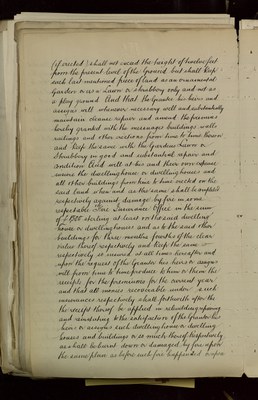 (if erected) shall not exceed the height of twelve feet
from the present level of the Ground but shall Keep
such last mentioned piece of land as an ornamental
Garden or as a Lawn or Shrubbery only and not as
a play ground And that the Grantee his heirs and
assigns will whenever necessary well and substantially
maintain cleanse repair and amend the premises
hereby granted with the messuages buildings walls
and Keep the same with the Gardens Lawn or
Shrubbery in good and substantial repair and
condition And will at his and their own expense
insure the dwellinghouse or dwellinghouses and
all other buildings from time to time erected on the
said land when and as the same shall be completed
respectively against damage by fire in some
respectable Fire Insurance Office in the sum
of £ at least on the said dwelling
house or dwellinghouses and as to the said other
buildings for three fourths of the clear
value thereof respectively and Keep the same
respectively so insured at all times hereafter and
upon the request of the Grantor his heirs or assigns
will from time to time produce to him or them the
receipts for the premiums for the current year
and that all monies recoverable under such
insurances respectively shall forthwith after the
receipt thereof be applied in rebuilding repairing
and reinstating to the satisfaction of the Grantor his
heirs or assigns such dwellinghouse or dwelling
houses and buildings or so much thereof respectively
as shall be burnt down or damaged by fire upon
the same plan as before such fire happened